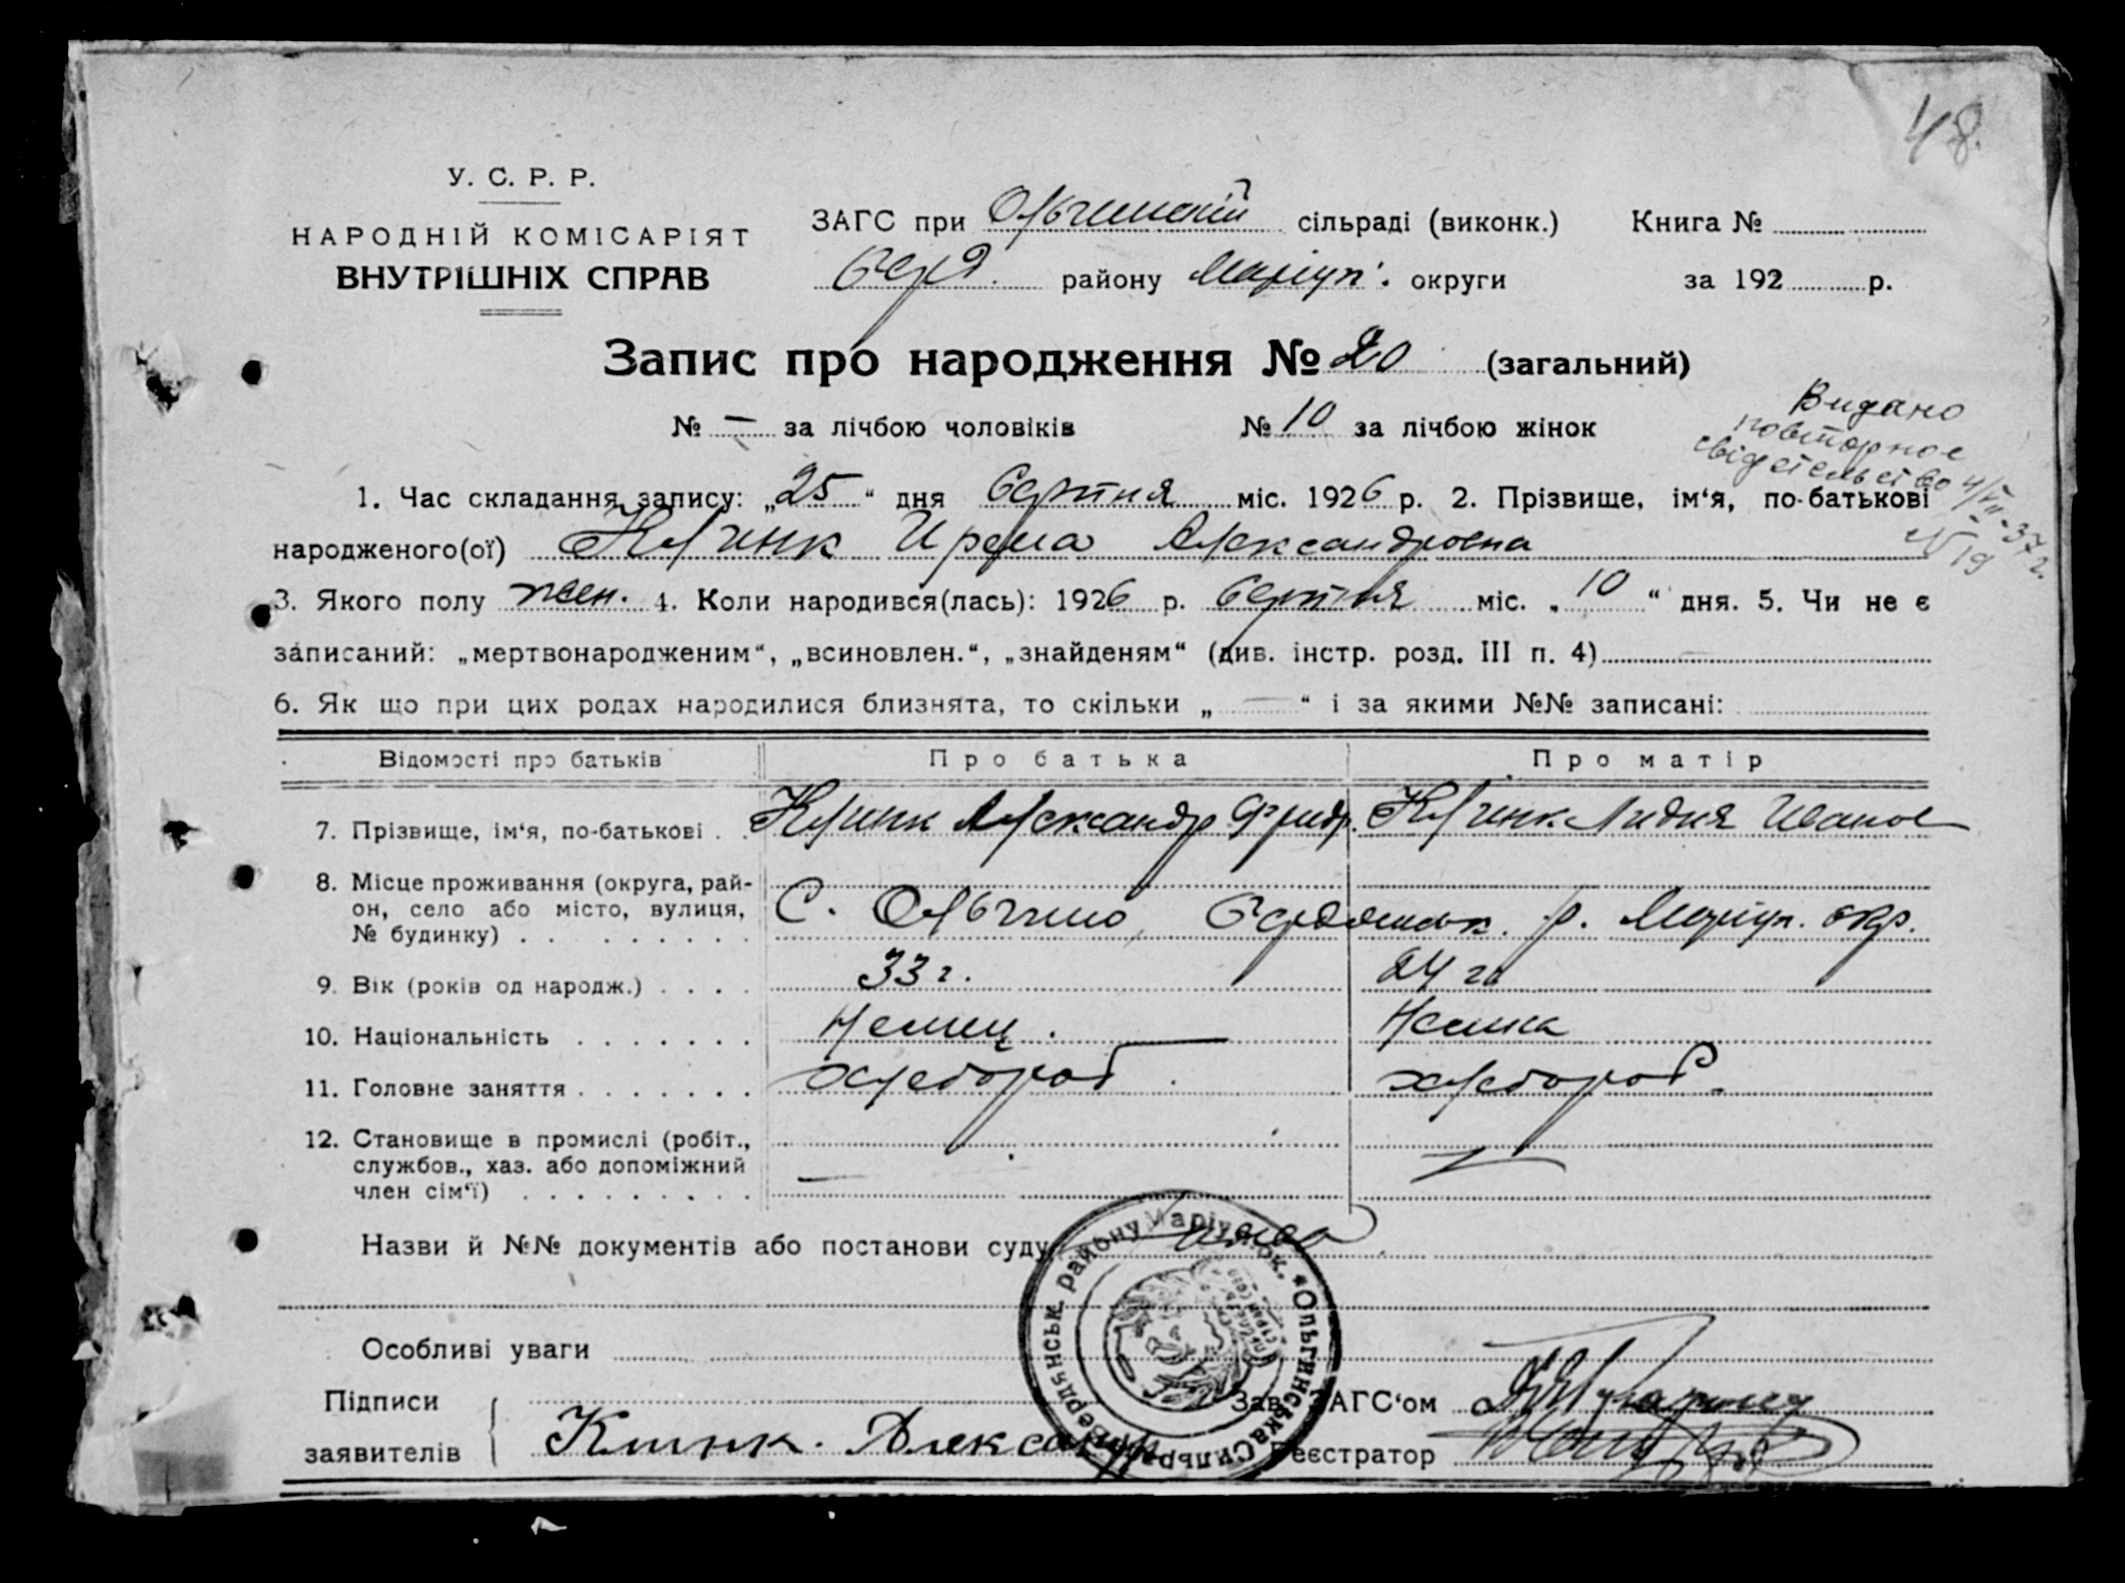 48.
У. С. Р. Р.
НАРОДНІЙ КОМІСАРІЯТ
ВНУТРІШНІХ СПРАВ
ЗАГС при Ольгинській сільраді (виконк.) Книга №
Берд. району Маріуп. округи за 192 р.
Запис про народження № 20 (загальний)
№ — за лічбою чоловіків № 10 за лічбою жінок
Видано
повторное
свідетельство 4/VII-37 г.
№ 19
1. Час складання запису: „25“ дня Серпня міс. 1926 р. 2. Прізвище, ім‘я, по-батькові
народженого(ої) Клинк Ирма Александровна
3. Якого полу жен. 4. Коли народився(лась): 1926 р. Серпня міс. „10“ дня. 5. Чи не є
записаний: „мертвонародженим“, „всиновлен.“, „знайденям“ (див. інстр. розд. III п. 4) —
6. Як що при цих родах народилися близнята, то скільки „—“ і за якими №№ записані:
Відомості про батьків Про батька Про матір
7. Прізвище, ім‘я, по-батькові . . Клинк Александр Фридр. Клинк Лидия Иванов
8. Місце проживання (округа, рай-
он, село або місто, вулиця,
№ будинку) . . . . . . . . . С. Ольгино, Бердянськ. р. Маріуп. окр.
9. Вік (років од народж.) . . . . 33 г. 24 г.
10. Національність . . . . . . . Немец. Немка
11. Головне заняття . . . . . . . хлебороб хлебороб.
12. Становище в промислі (робіт.,
службов., хаз. або допоміжний
член сім‘ї) . . . . . . . . . — —
Назви й №№ документів або постанови суду
Особливі уваги
Підписи
заявителів Клинк. Александр
Зав. ЗАГС‘ом
Реєстратор
Ольгинська Сильрада Бердянськ. району Маріуп. ок.